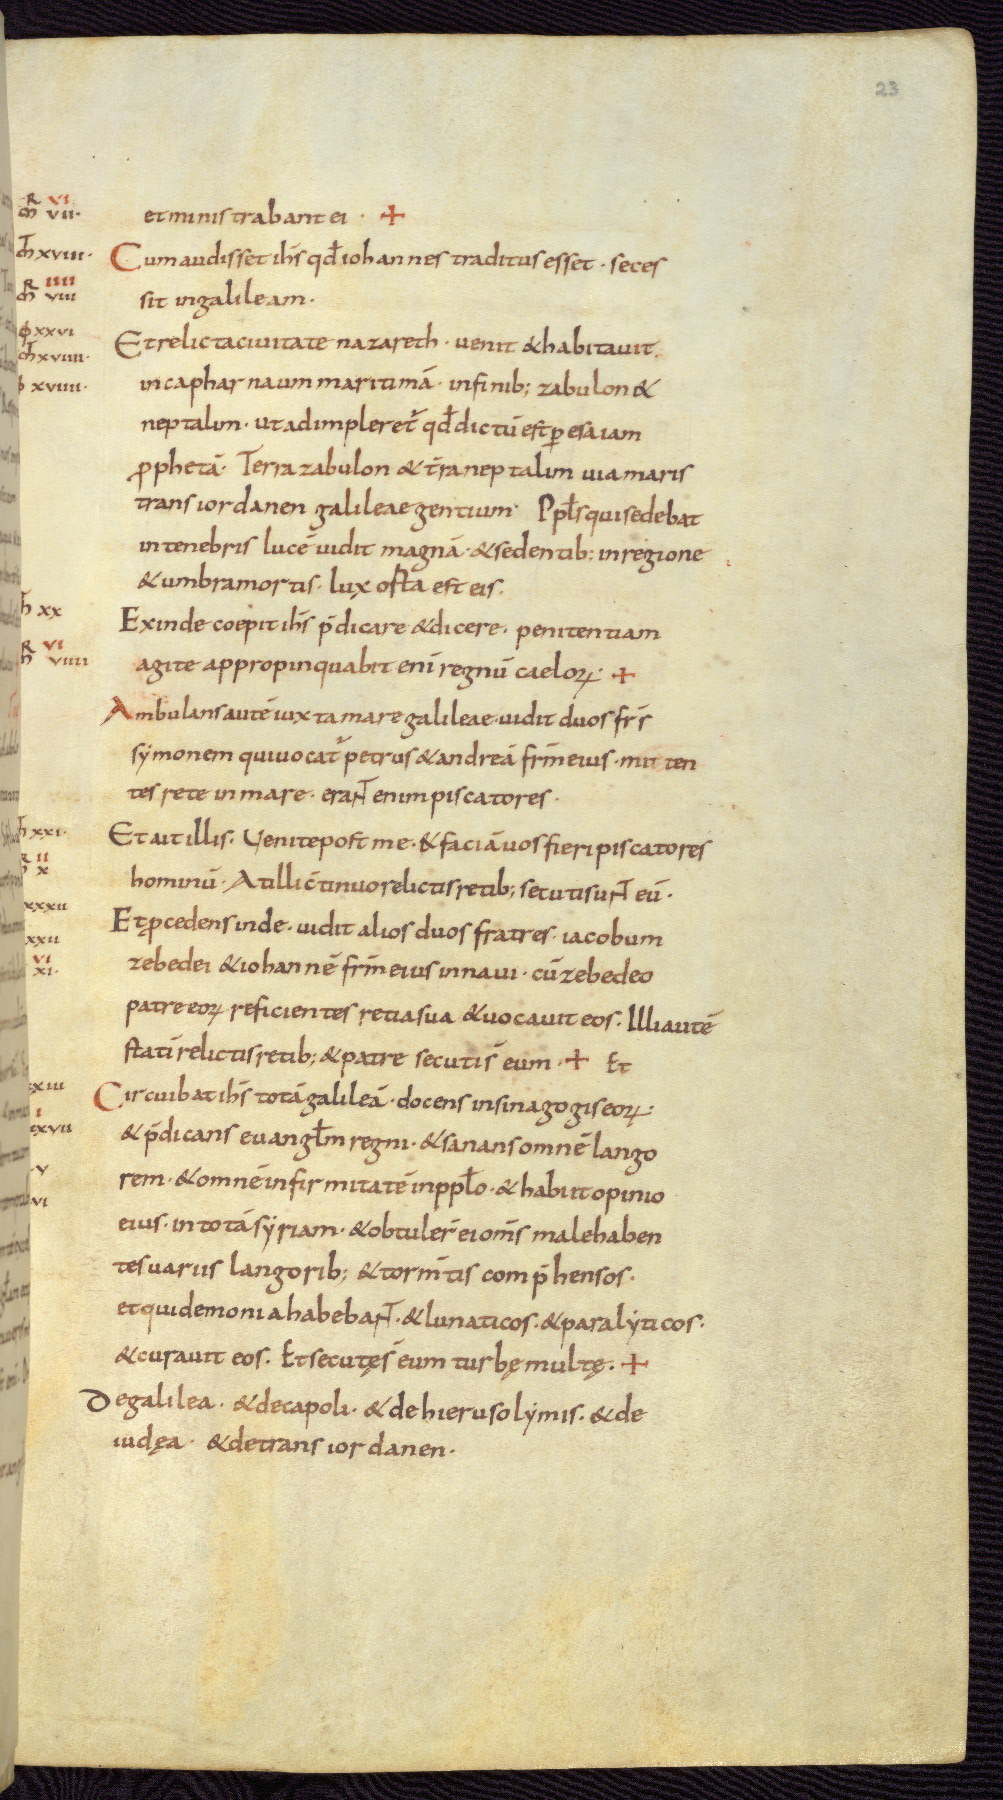 23
R VI
m̄ VII· et ministrabant ei · +
m̄ XVIII· Cum audisset ihs̄ qd̄ iohannes traditus esset · seces
R IIII
m̄ VIII sit in galileam ·
XXVI Et relicta civitate nazareth · uenit & habitauit
m̄ XVIIII· in capharnaum maritimā · in finib; zabulon &
XVIIII· neptalim · Ut adimpleret᷑ qd̄ dictū est p̄ esaiam
p̄phetā · Terra zabulon & t̄ra neptalim uia maris
trans iordanen galileae gentium · Ppl̄s qui sedebat
in tenebris lucē uidit magnā · & sedentib; in regione
& umbra mortis · lux orta est eis ·
XX Exinde coepit ihs̄ p̄dicare & dicere · penitentiam
R VI
VIIII agite appropinquabit enī regnū caeloꝝ · +
Ambulans autē iuxta mare galileae uidit duos fr̄s
symonem qui uocat᷑ petrus & andreā fr̄m eius · mitten
tes rete in mare · erant enim piscatores ·
XXI· Et ait illis · Uenite post me · & faciā uos fieri piscatores
R II
X hominū · At illi c̄tinuo relictis retib; secuti sunt eū ·
XXXII Et p̄cedens inde · uidit alios duos fratres · iacobum
XXII
VI
XI· zebedei & iohannē fr̄m eius in naui · cū zebedeo
patre eoꝝ reficientes retia sua & uocauit eos · Illi autē
statī relictis retib; & patre secuti s̄ eum · + Et
XIII Circuibat ihs̄ totā galileā · docens in sinagogis eoꝝ ·
I
XVII & p̄dicans euangl̄m regni · & sanans omnē lango
V rem · & omnē infirmitatē in ppl̄o · & habiit opinio
VI eius · in totā syriam · & obtuler̄ ei om̄s male haben
tes uariis langorib; & torm̄tis comp̄hensos ·
et qui demonia habebant · & lunaticos · & paralyticos ·
& curauit eos · Et secutę s̄ eum turbę multę · +
De galilea · & decapoli · & de hierusolymis · & de
iudęa · & de trans iordanen ·